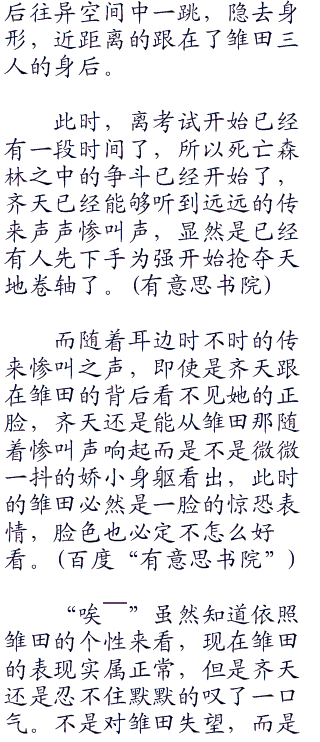 后往异空间中一跳，隐去身
形，近距离的跟在了雏田三
人的身后。
此时，离考试开始已经
有一段时间了，所以死亡森
林之中的争斗已经开始了，
齐天已经能够听到远远的传
来声声惨叫声，显然是已经
有人先下手为强开始抢夺天
地卷轴了。(有意思书院)
而随着耳边时不时的传
来惨叫之声，即使是齐天跟
在雏田的背后看不见她的正
脸，齐天还是能从雏田那随
着惨叫声响起而是不是微微
一抖的娇小身躯看出，此时
的雏田必然是一脸的惊恐表
情，脸色也必定不怎么好
看。(百度“有意思书院”)
“唉——”虽然知道依照
雏田的个性来看，现在雏田
的表现实属正常，但是齐天
还是忍不住默默的叹了一口
气。不是对雏田失望，而是